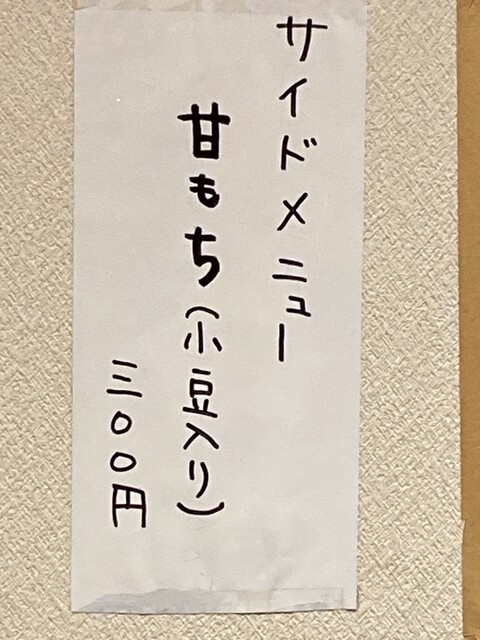 サイドメニュー
甘もち(小豆入り)
三〇〇円